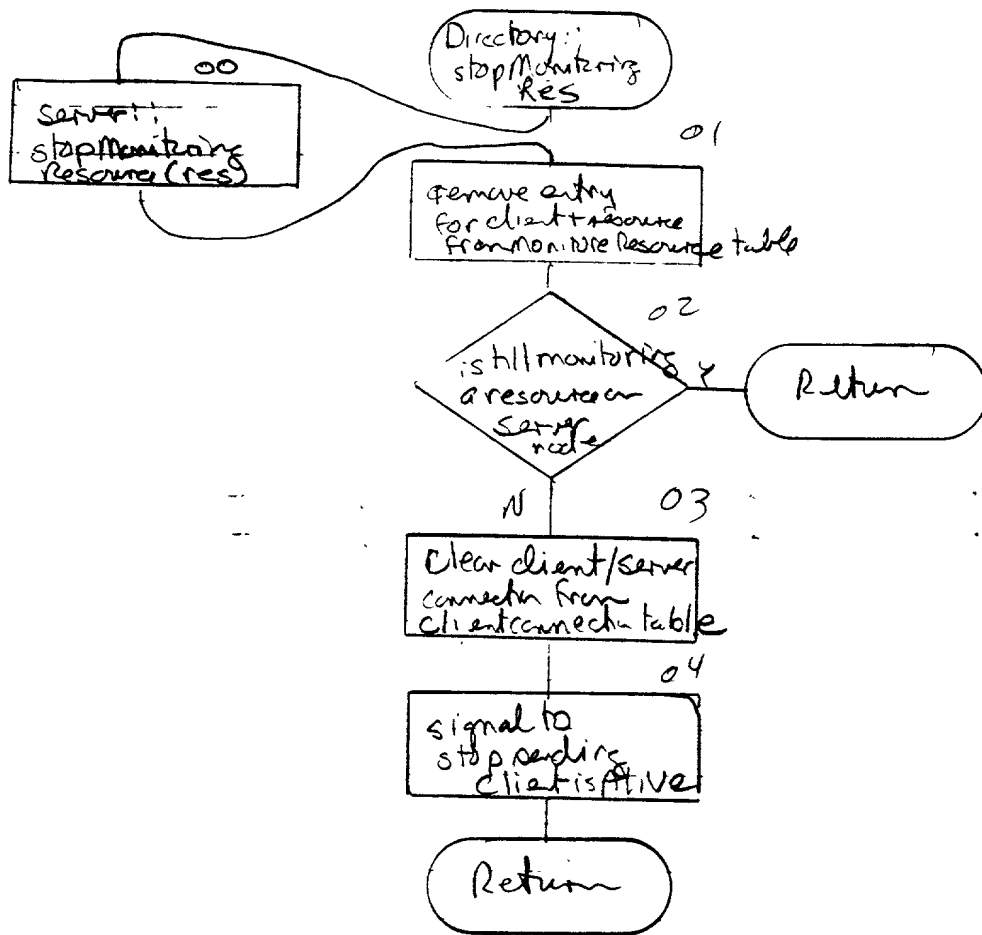 Directory::
stopMonitoring
Res
00
server::
stopMonitoring
Resource(res)
01
remove entry
for client + resource
from moniture Resource table
02
is till monitoring
a resource on
server
node
Y
Return
N
03
Clear client/server
connection from
clientconnection table
04
signal to
stop sending
client is Alive
Return